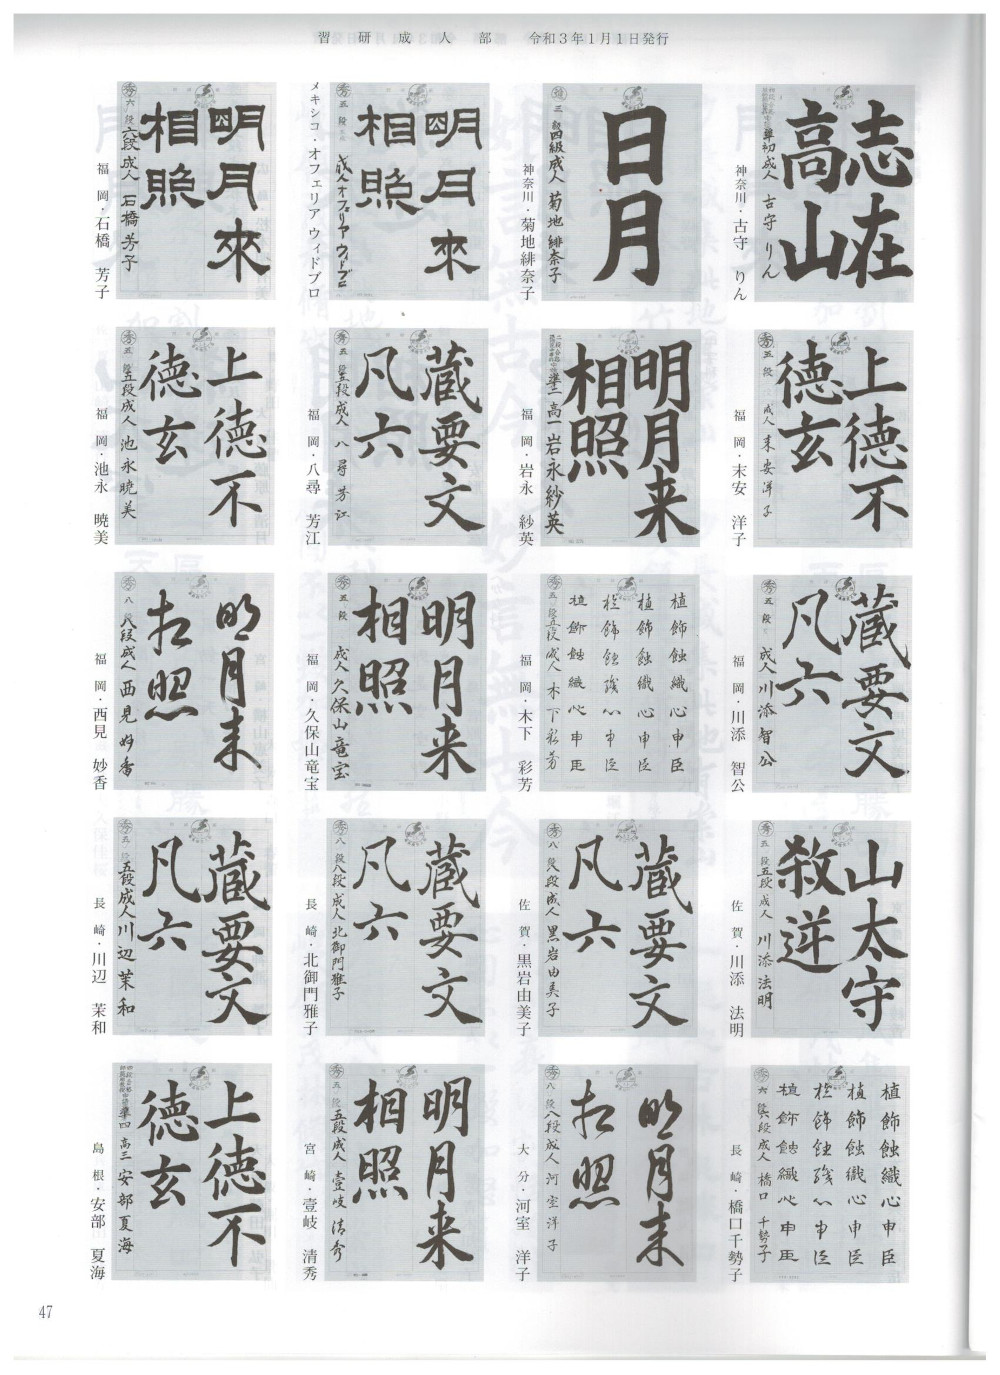 習研成人部 令和3年1月1日発行
志在
高山
準初成人 古守りん
神奈川・古守 りん
日月
三 四級成人 菊地緋奈子
神奈川・菊地緋奈子
明月來
相照
五段 成人 オフェリア ウィドブロ
メキシコ・オフェリア ウィドブロ
明月來
相照
六段 六段成人 石橋芳子
福岡・石橋 芳子
上德不
德玄
五段 成人 末安洋子
福岡・末安 洋子
明月来
相照
準二 高一 岩永紗英
福岡・岩永 紗英
蔵要文
凡六
五段 五段成人 八尋芳江
福岡・八尋 芳江
上德不
德玄
五段 五段成人 池永暁美
福岡・池永 暁美
蔵要文
凡六
五段 成人 川添智公
福岡・川添 智公
植飾蝕織心申臣
植飾蝕織心申臣
植飾蝕織心申臣
植飾蝕織心申臣
五段 五段成人 木下彩芳
福岡・木下 彩芳
明月来
相照
五段 成人 久保山竜宝
福岡・久保山竜宝
明月来
相照
八段 八段成人 西見妙香
福岡・西見 妙香
山太守
敎逆
五段 五段成人 川添法明
佐賀・川添 法明
蔵要文
凡六
八段 八段成人 黒岩由美子
佐賀・黒岩由美子
蔵要文
凡六
八段 八段成人 北御門雅子
長崎・北御門雅子
蔵要文
凡六
五段 五段成人 川辺茉和
長崎・川辺 茉和
植飾蝕織心申臣
植飾蝕織心申臣
植飾蝕織心申臣
植飾蝕織心申臣
六段 六段成人 橋口千勢子
長崎・橋口千勢子
明月来
相照
八段 八段成人 河室洋子
大分・河室 洋子
明月来
相照
五段 五段成人 壹岐清秀
宮崎・壹岐 清秀
上德不
德玄
準四 高三 安部夏海
島根・安部 夏海
47